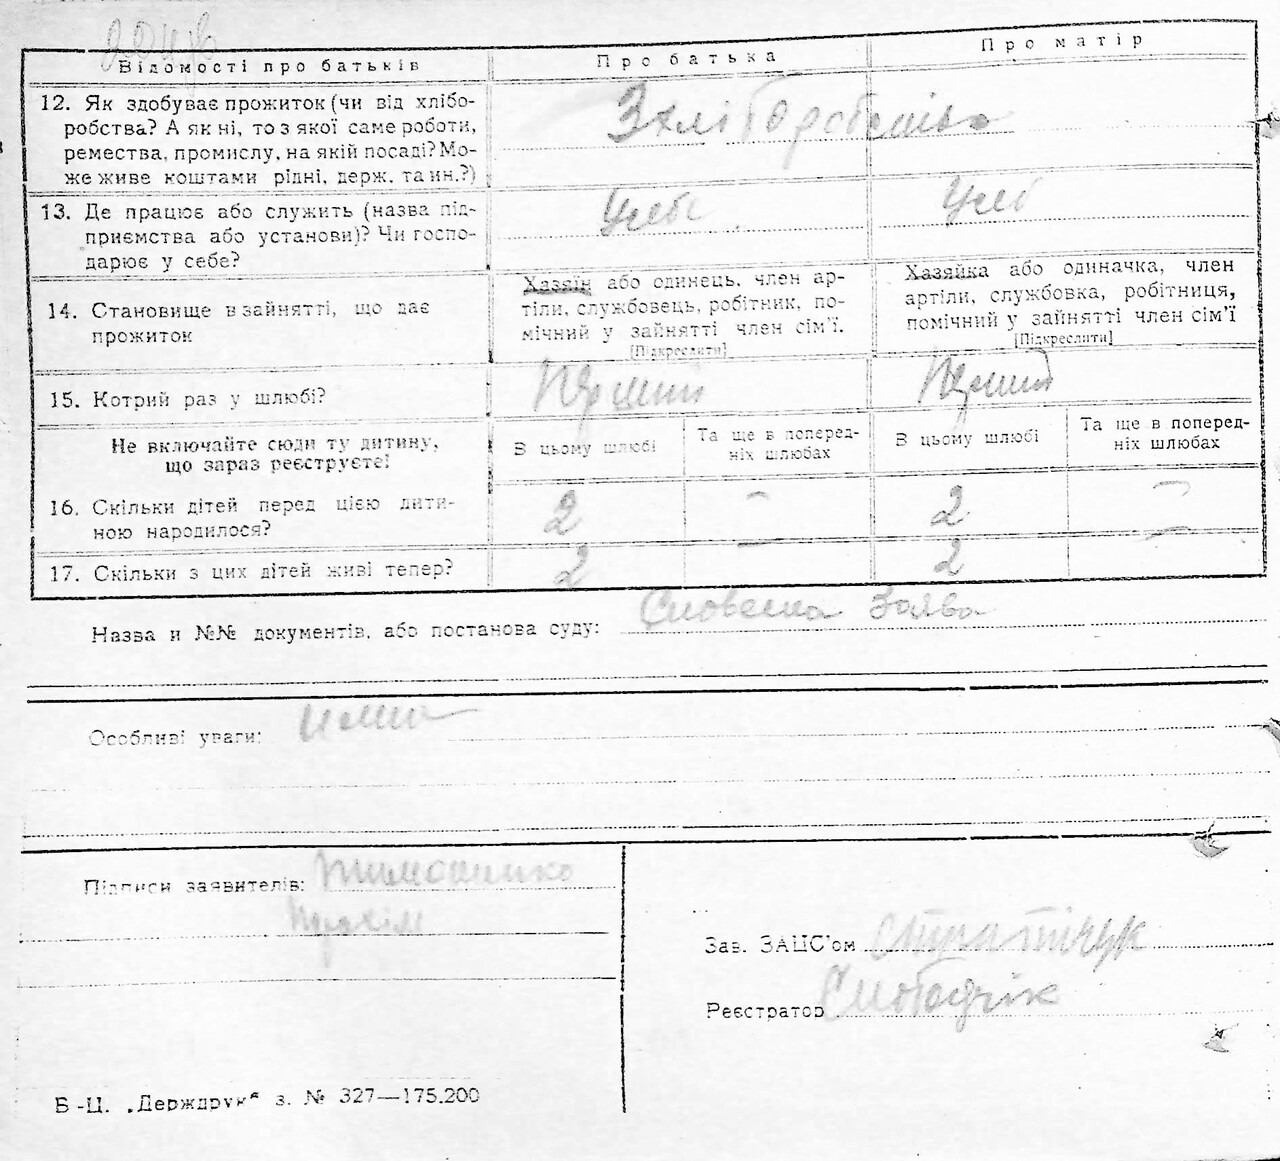 Відомості про батьків
Про батька
Про матір
12. Як здобуває прожиток (чи від хлібо-
робства? А як ні, то з якої саме роботи,
ремества, промислу, на якій посаді? Мо-
же живе коштами рідні, держ. та ин.?)
З хліборобства
13. Де працює або служить (назва під-
приємства або установи)? Чи госпо-
дарює у себе?
У себе
У себ
14. Становище в зайнятті, що дає
прожиток
Хазяїн або одинець, член ар-
тіли, службовець, робітник, по-
мічний у зайнятті член сім'ї.
[Підкреслити]
Хазяйка або одиначка, член
артіли, службовка, робітниця,
помічний у зайнятті член сім'ї
[Підкреслити]
15. Котрий раз у шлюбі?
Перший
Перший
Не включайте сюди ту дитину,
що зараз реєструєте!
В цьому шлюбі
Та ще в поперед-
ніх шлюбах
В цьому шлюбі
Та ще в поперед-
ніх шлюбах
16. Скільки дітей перед цією дити-
ною народилося?
2 — 2 —
17. Скільки з цих дітей живі тепер?
2 — 2 —
Назва и №№ документів, або постанова суду: Словесна Заява
Особливі уваги: нема
Підписи заявителів: Тимошенко
Зав. ЗАЦС'ом
Реєстратор
Б-Ц. „Держдрук" з. № 327—175.200